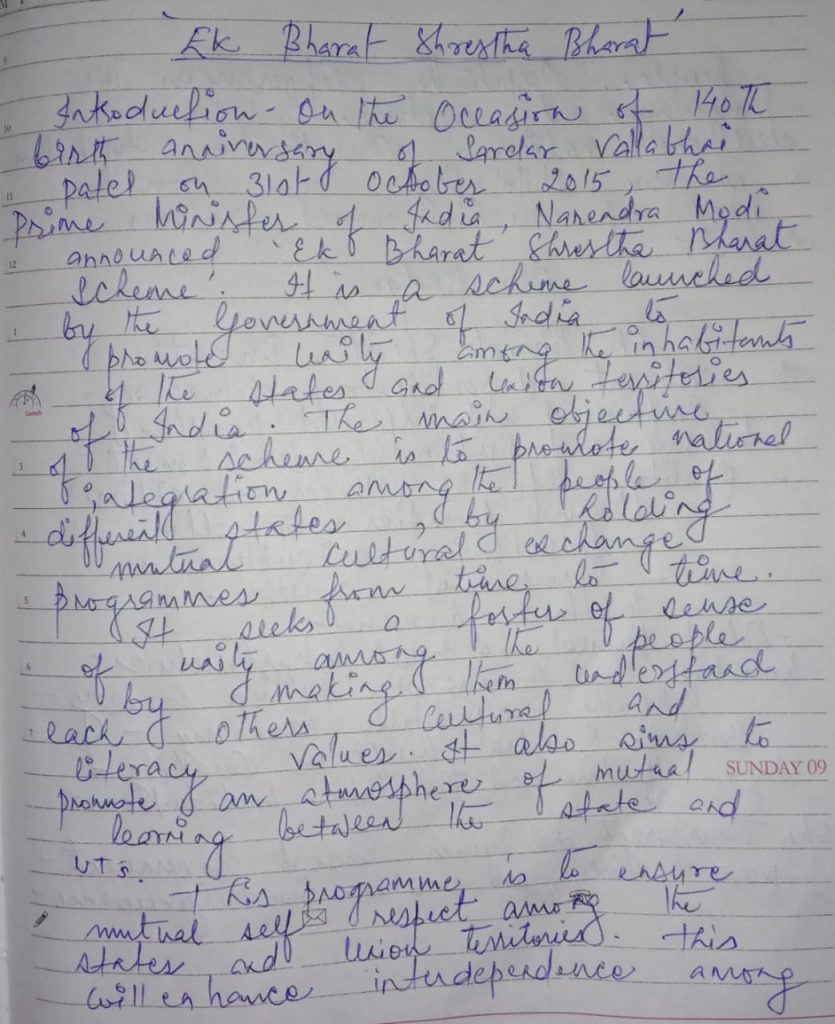 'Ek Bharat Shrestha Bharat'
Introduction - On the Occasion of 140th
birth anniversary of Sardar Vallabhai
patel on 31st October 2015, the
Prime Minister of India, Narendra Modi
announced 'Ek Bharat Shrestha Bharat
Scheme'. It is a scheme launched
by the Government of India to
promote unity among the inhabitants
of the states and Union territories
of India. The main objective
of the scheme is to promote national
integration among the people of
different states, by holding
mutual cultural exchange
programmes from time to time.
It seeks a foster of sense
of unity among the people
by making them understand
each others cultural and
literacy values. It also aims to
SUNDAY 09
promote an atmosphere of mutual
learning between the state and
UTs.
This programme is to ensure
mutual self respect among the
states and Union Territories. This
will enhance interdependence among